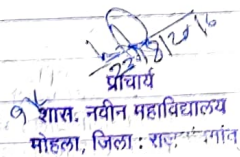 22/8/2016
प्राचार्य
शास. नवीन महाविद्यालय
मोहला, जिला :